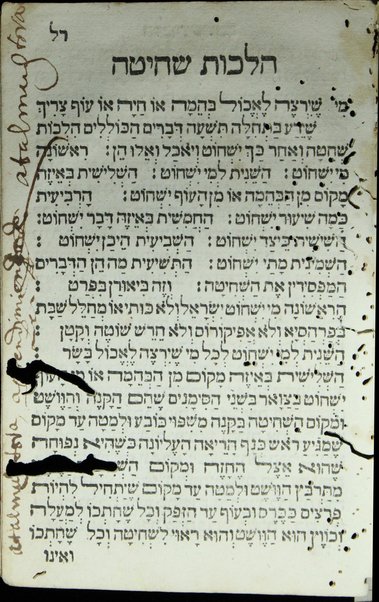 רל
הלכות שחיטה
מי שֶׁיִרְצֶה לֶאֱכוֹל בְּהֵמָה אוֹ חַיָה אוֹ עוֹף צָרִיךְ
שֶׁיֵדַע בַּתְּחִלָה תִּשְׁעָה דְבָרִים הַכּוֹלְלִים הִלְכוֹת
שְׁחִיטָה וְאַחַר כָּךְ יִשְׁחוֹט וְיֹאכַל וְאֵלוּ הֵן׃ רִאשׁוֹנָה
מִי יִשְׁחוֹט׃ הַשֵׁנִית לְמִי יִשְׁחוֹט׃ הַשְׁלִישִׁית בְּאֵיזֶה
מָקוֹם מִן הַבְּהֵמָה אוֹ מִן הָעוֹף יִשְׁחוֹט׃ הָרְבִיעִית
כַּמָה שִׁעוּר יִשְׁחוֹט׃ הַחֲמִשִׁית בְּאֵיזֶה דָבָר יִשְׁחוֹט׃
הַשִׁשִׁית כֵּיצַד יִשְׁחוֹט׃ הַשְׁבִיעִית הֵיכָן יִשְׁחוֹט׃
הַשְׁמִנִית מָתַי יִשְׁחוֹט׃ הַתְּשִׁיעִית מַה הֵן הַדְבָרִים
הַמַפְסִידִין אֶת הַשְׁחִיטָה׃ וְזֶה בֵּיאוּרָן בִּפְרָט
הָרִאשׁוֹנָה מִי יִשְׁחוֹט יִשְׂרָאֵל וְלֹא כּוּתִי אוֹ מְחַלֵל שַׁבָּת
בְּפַרְהֶסְיָא וְלֹא אֶפִּיקוֹרוֹס וְלֹא חֵרֵשׁ שׁוֹטֶה וְקָטָן
הַשֵׁנִית לְמִי יִשְׁחוֹט לְכָל מִי שֶׁיִרְצֶה לֶאֱכוֹל בָּשָׂר
הַשְׁלִישִׁית בְּאֵיזֶה מָקוֹם מִן הַבְּהֵמָה אוֹ מִן הָעוֹף
יִשְׁחוֹט בַּצַוָאר בִּשְׁנֵי הַסִימָנִים שֶׁהֵם הַקָנֶה וְהַוֵושֶׁט
וּמְקוֹם הַשְׁחִיטָה בַּקָנֶה מִשִׁפּוּי כּוֹבַע וּלְמַטָה עַד מָקוֹם
שֶׁמַגִיעַ רֹאשׁ כְּנַף הָרֵיאָה הָעֶלְיוֹנָה כְּשֶׁהִיא נְפוּחָה
שֶׁהוּא אֵצֶל הֶחָזֶה וּמְקוֹם
מִתַּרְבֵּץ הַוֵושֶׁט וּלְמַטָה עַד מָקוֹם שֶׁיַתְחִיל לִהְיוֹת
פְּרָצִים כַּכֶּרֶס וּבָעוֹף עַד הַזֶפֶק וְכָל שֶׁחָתְכוּ לְמַעְלָה
וְכִוֵוץ הוּא הַוֵושֶׁט וְהוּא רָאוּי לִשְׁחִיטָה וְכָל שֶׁחָתְכוּ
וְאֵינוֹ